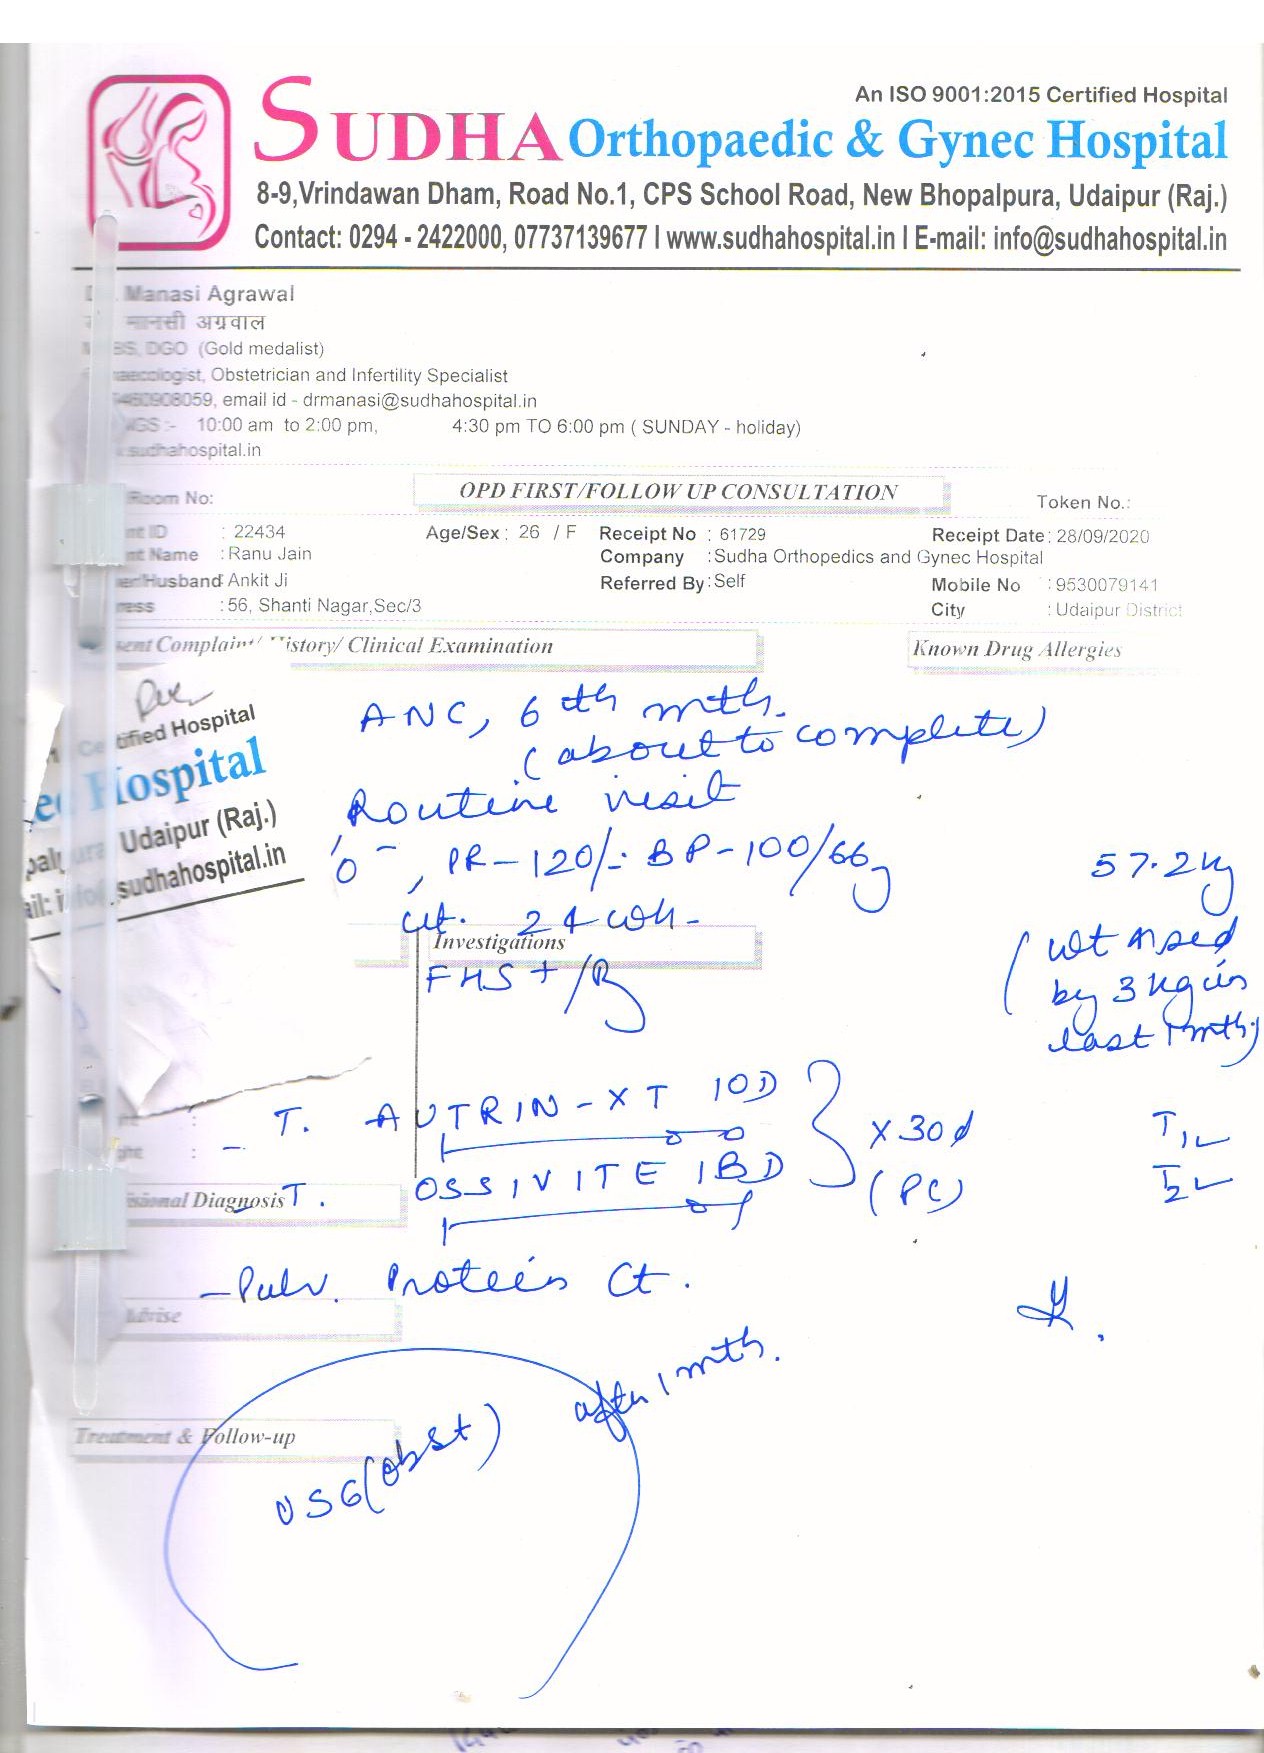 An ISO 9001:2015 Certified Hospital
SUDHA Orthopaedic & Gynec Hospital
8-9,Vrindawan Dham, Road No.1, CPS School Road, New Bhopalpura, Udaipur (Raj.)
Contact: 0294 - 2422000, 07737139677 I www.sudhahospital.in I E-mail: info@sudhahospital.in
Manasi Agrawal
मानसी अग्रवाल
BS, DGO (Gold medalist)
aecologist, Obstetrician and Infertility Specialist
460908059, email id - drmanasi@sudhahospital.in
GS :- 10:00 am to 2:00 pm, 4:30 pm TO 6:00 pm ( SUNDAY - holiday)
.sudhahospital.in
Room No: OPD FIRST/FOLLOW UP CONSULTATION Token No.:
nt ID : 22434 Age/Sex : 26 / F Receipt No : 61729 Receipt Date: 28/09/2020
nt Name : Ranu Jain Company :Sudha Orthopedics and Gynec Hospital
er/Husband Ankit Ji Referred By :Self Mobile No :9530079141
ress :56, Shanti Nagar,Sec/3 City : Udaipur District
sent Complaint/ History/ Clinical Examination Known Drug Allergies
tified Hospital
Hospital
Udaipur (Raj.)
sudhahospital.in
ANC, 6th mth.
(about to complete)
Routine visit
PR-120/- BP-100/66 57.2kg
ut. 24 wk-
Investigations
FHS +/R
(wt ↑sed
by 3 kg in
last 1 mth)
- T. AUTRIN-XT 1OD
T. OSSIVITE 1BD
x30d
(PC)
T1
T2
sional Diagnosis
- Pulv. Proteins Ct.
Advise
after 1 mth.
Treatment & Follow-up
USG(obst)